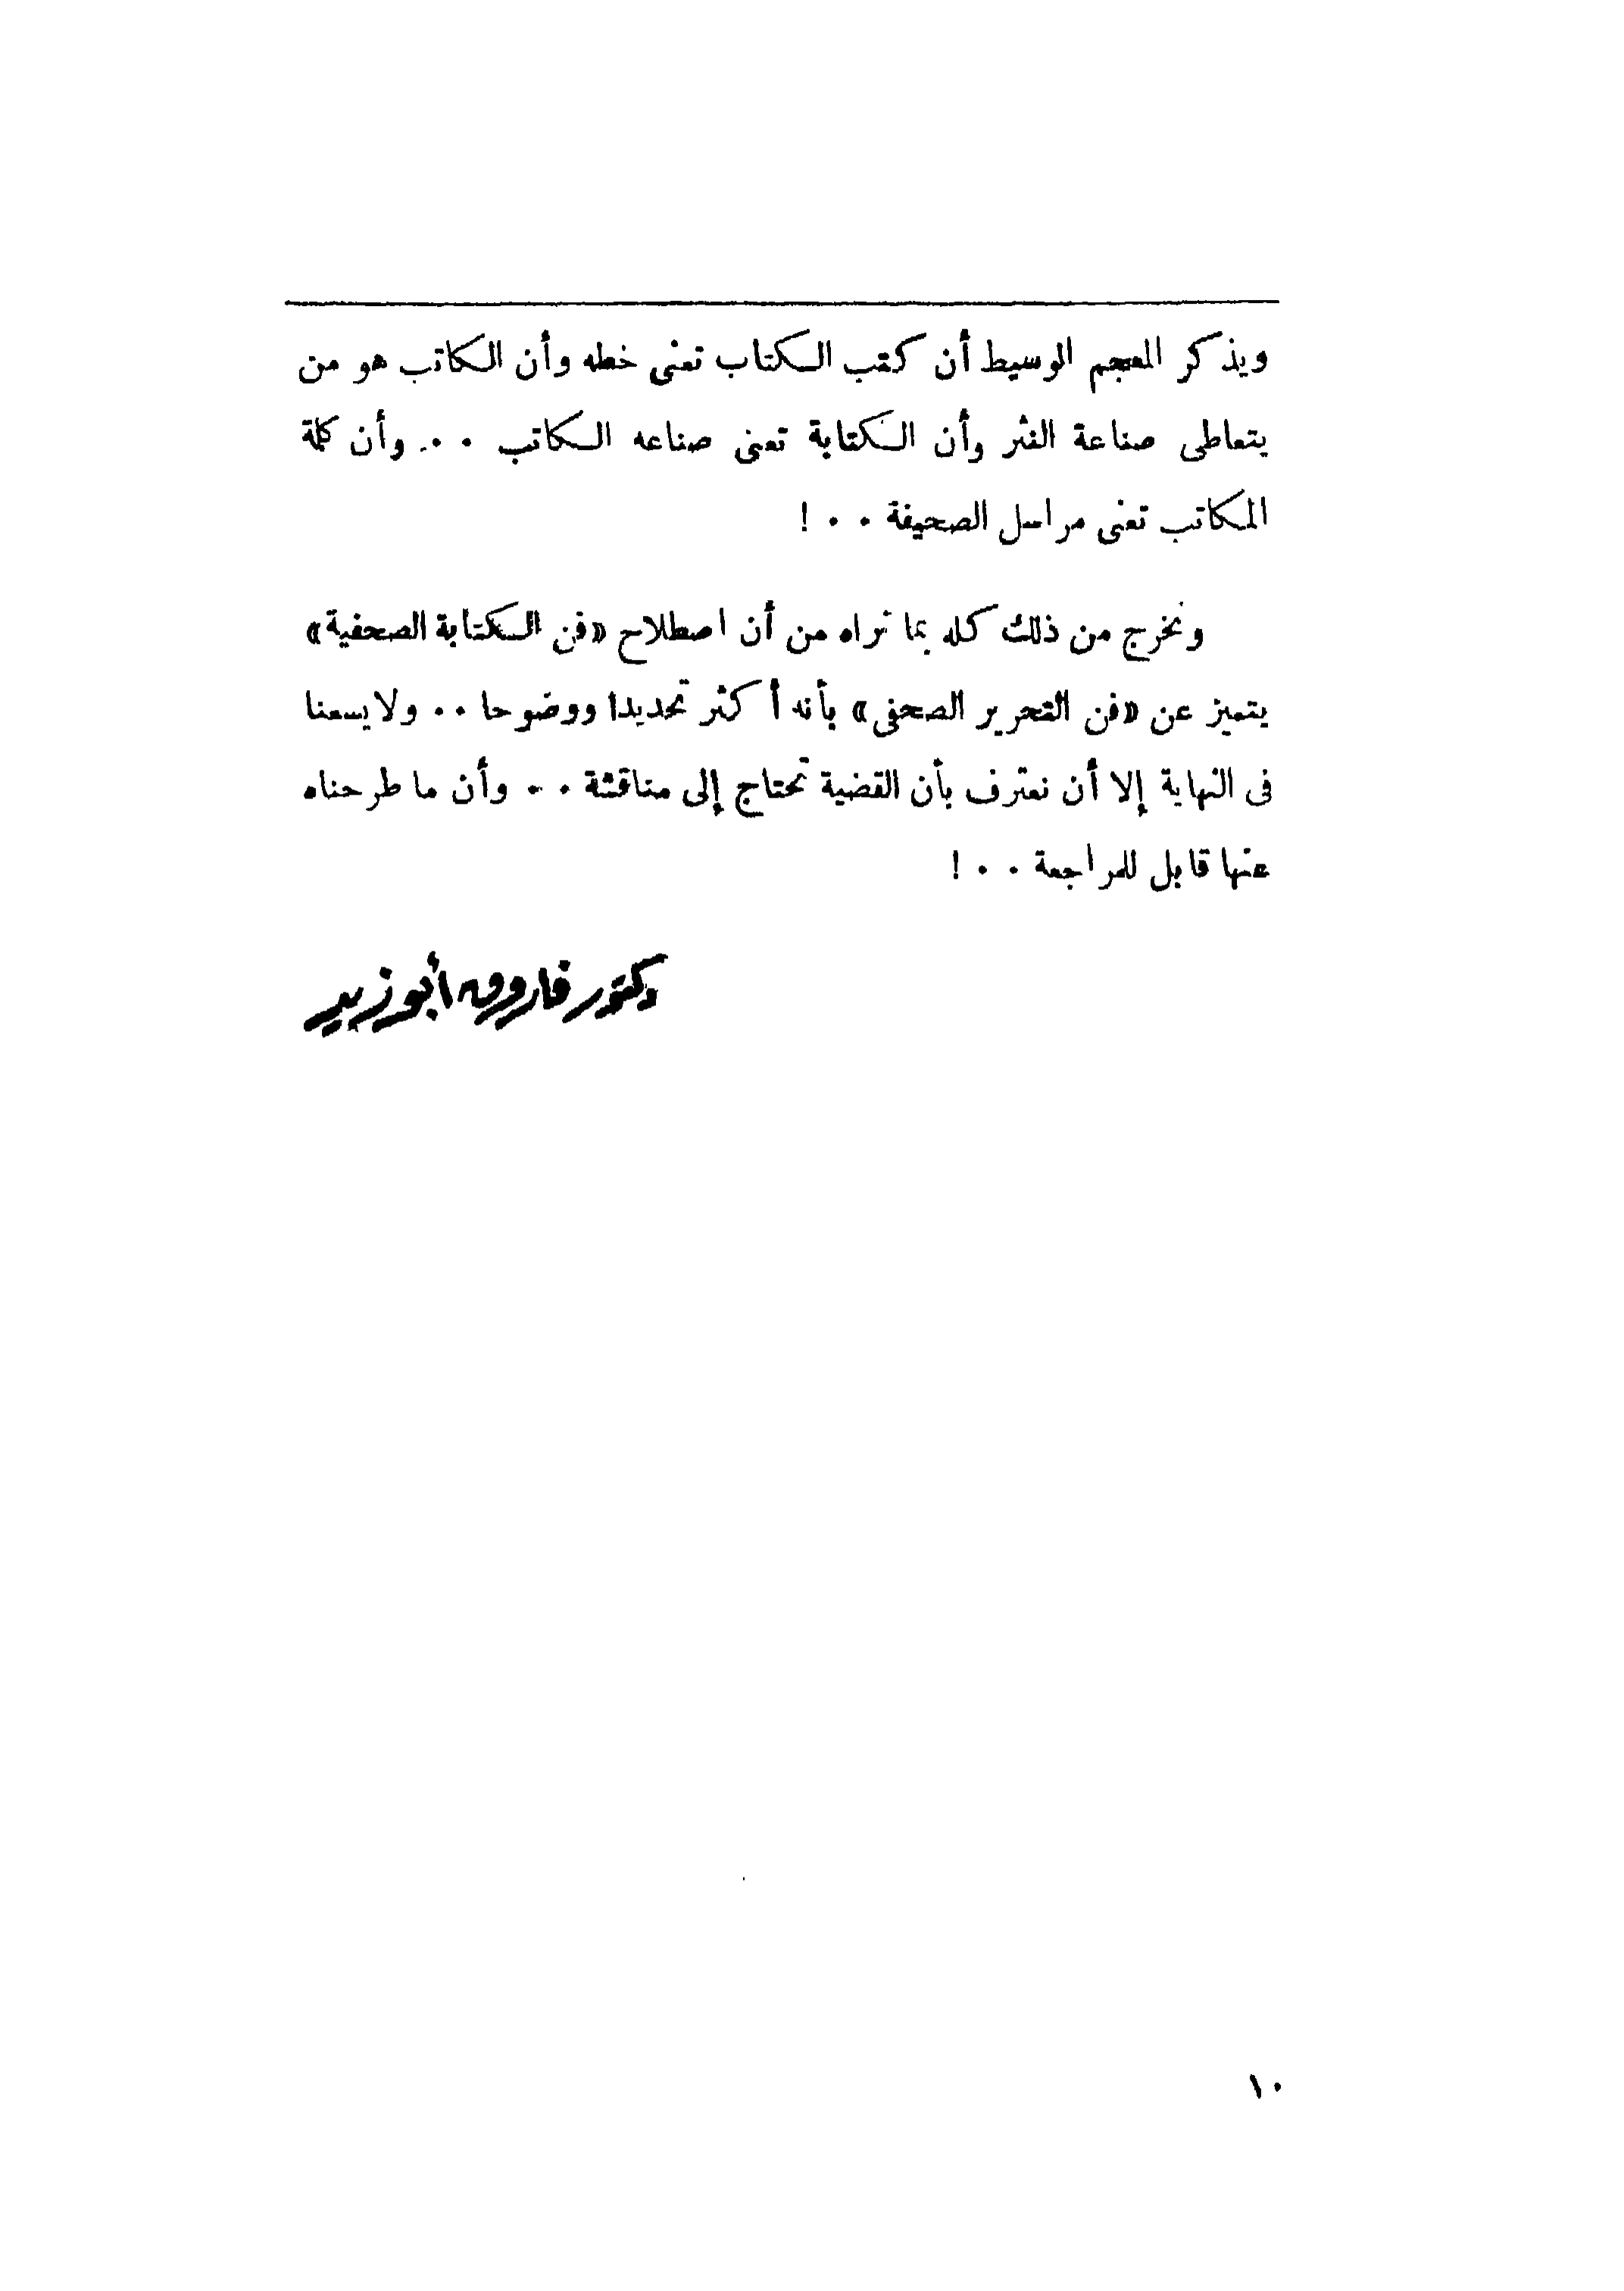 ويذكر المعجم الوسيط أن كتب الكتاب تعنى خطه وأن الكاتب هو من
يتعاطى صناعة النثر وأن الكتابة تعنى صناعه الكاتب . . . وأن كلمة
المكاتب تعنى مراسل الصحيفة . . !
ونخرج من ذلك كله بما نراه من أن اصطلاح «فن الكتابة الصحفية»
يتميز عن «فن التحرير الصحفى» بأنه أكثر تحديدا ووضوحا . . ولا يسعنا
فى النهاية إلا أن نعترف بأن القضية تحتاج إلى مناقشة . . وأن ما طرحناه
عنها قابل للمراجعة . . !
دكتور فاروق أبو زيد
١٠